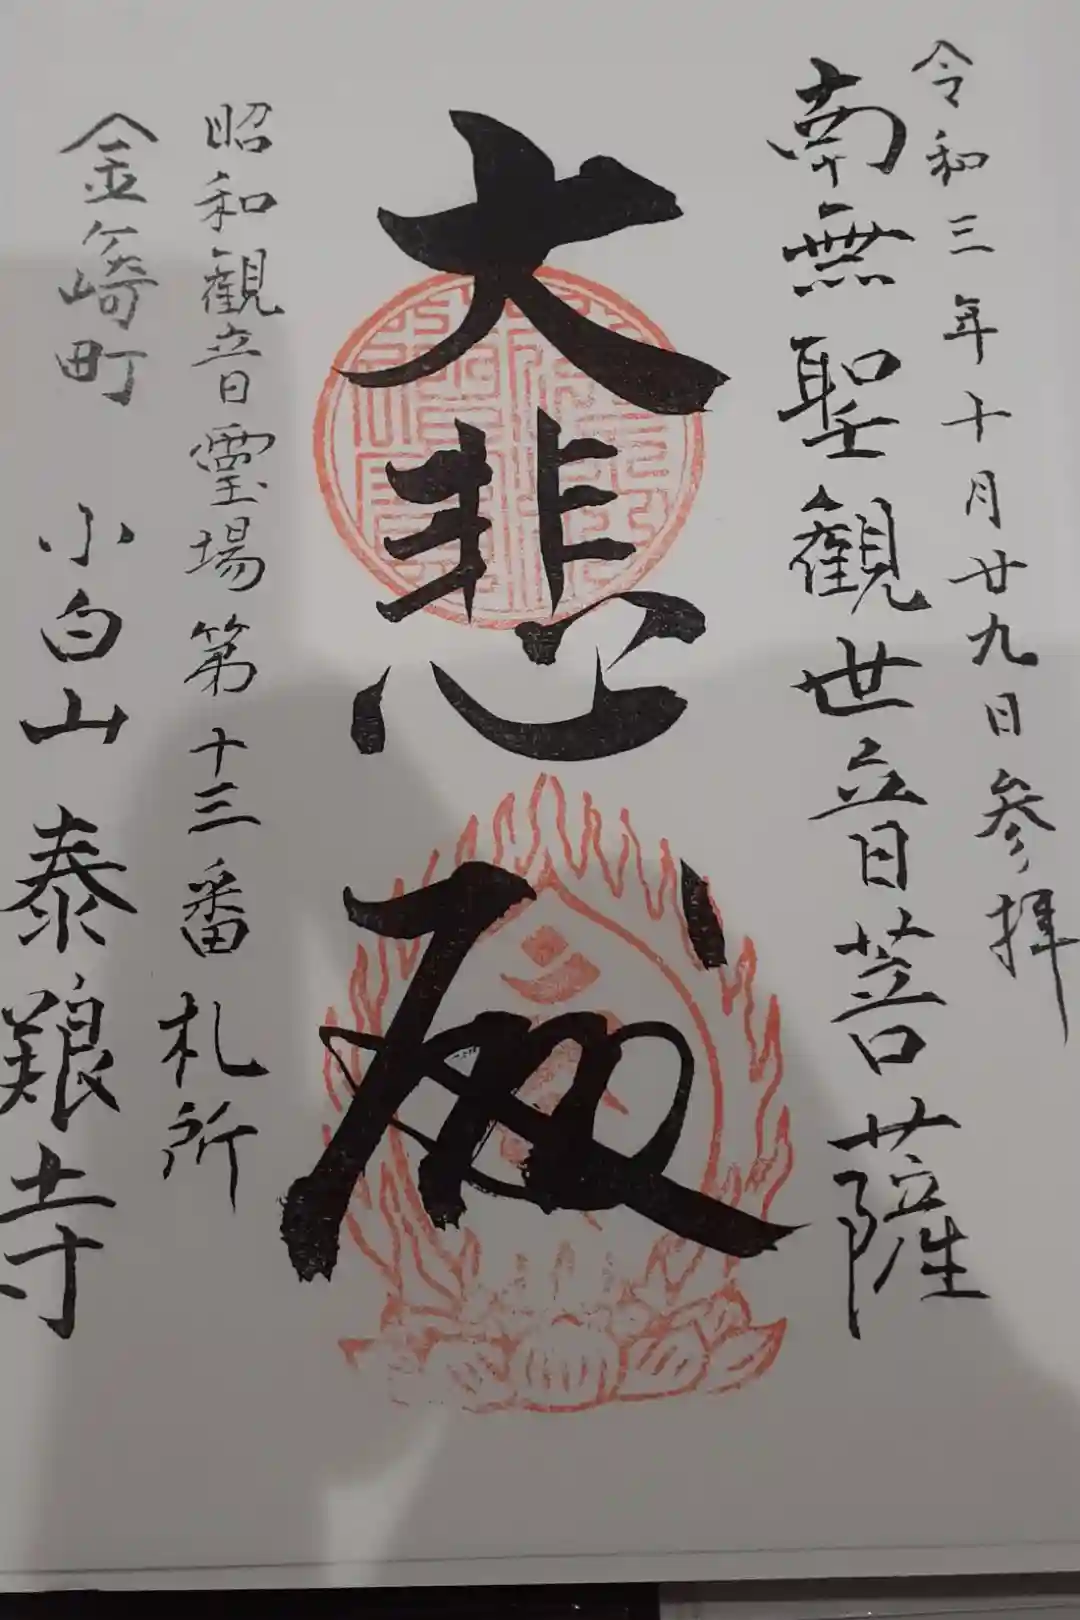 令和三年十月廿九日参拝
南無聖観世音菩薩
大悲殿
昭和観音霊場第十三番札所
金ヶ崎町 小白山 泰養寺